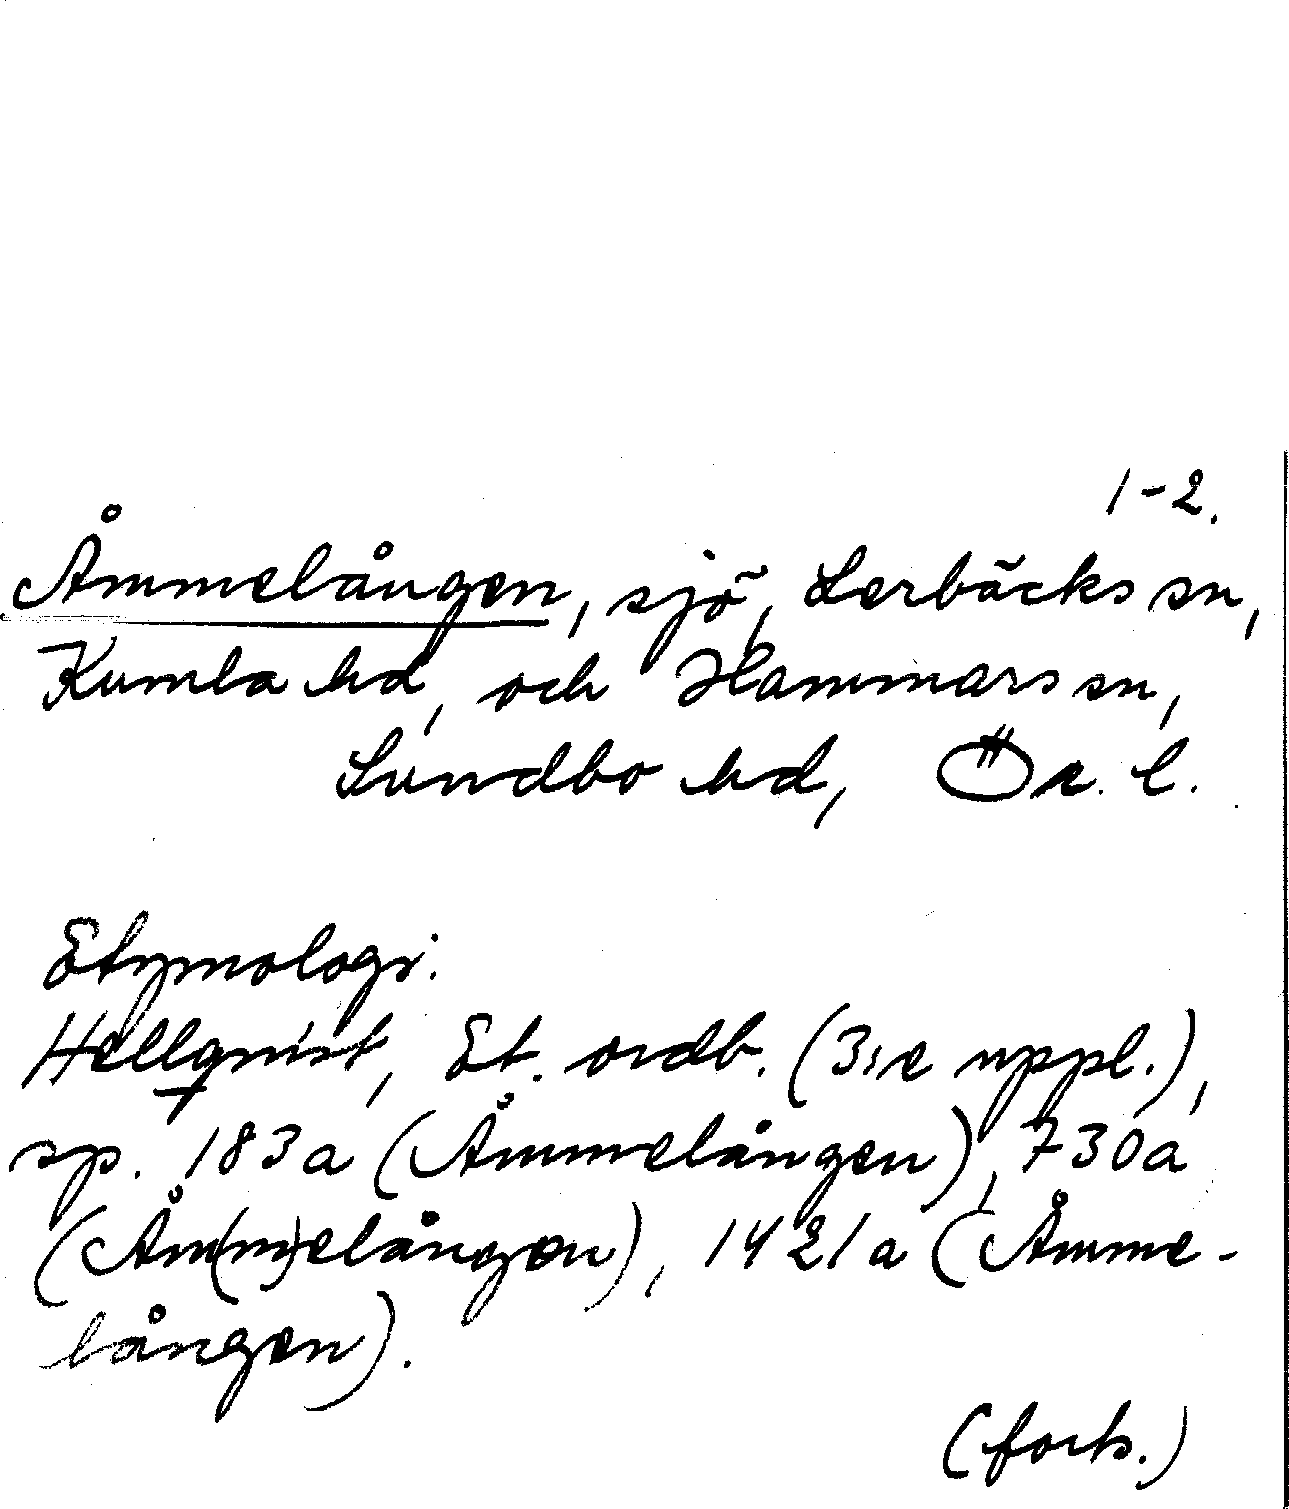 1-2.
Åmmelången, sjö, Lerbäcks sn,
Kumla hd, och Hammars sn,
Sundbo hd, Ör. l.
Etymologi.
Hellquist, Et. ordb. (3:e uppl.),
sp. 183a (Åmmelången), 730a
(Åm(m)elången), 1421a (Åmme-
lången).
(forts.)